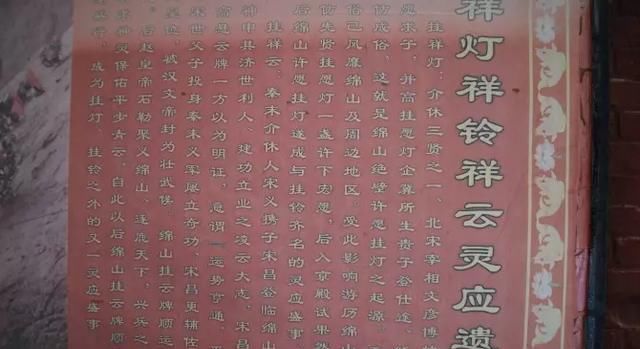 祥灯祥铃祥云灵应遗
挂祥灯：介休三贤之一、北宋宰相文彦博
愿求子，并高挂愿灯企冀所生贵子登仕途，
仿成俗，这就是绵山绝壁许愿挂灯之起源。
俗已风靡绵山及周边地区，受此影响游历绵山
仿先贤挂愿灯一盏许下宏愿，后入京殿试果然
后绵山许愿挂灯遂成与挂铃齐名的灵应盛事
挂祥云：秦末介休人宋义携子宋昌登临绵山
神申其济世利人、建功立业之凌云大志，宋昌
高悬云牌一方以为明证，意谓"运势亨通，
宋世父子投身秦末义军屡立奇功，宋昌更辅佐
皇位，被汉文帝封为壮武侯。绵山挂云牌顺运
。后赵皇帝石勒聚义绵山、逐鹿天下，兴兵之
神灵保佑平步青云。自此以后绵山挂云牌顺
盛行，成为挂灯、挂铃之外的又一灵应盛事